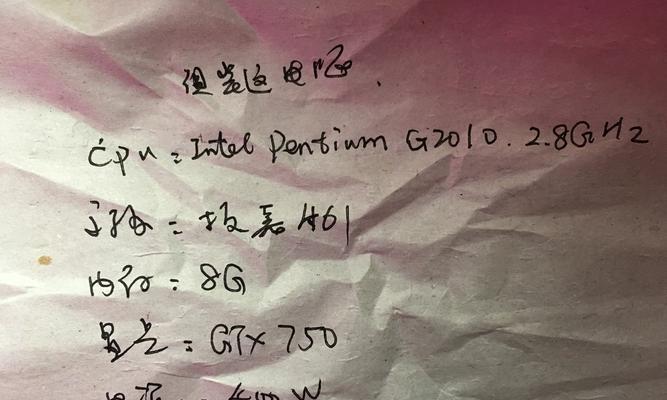 组装的电脑.
cpu:Intel Pentium G2010.2.8GHz
主板:技嘉H61
内存:8G
显卡:GTX 750
电源:400W